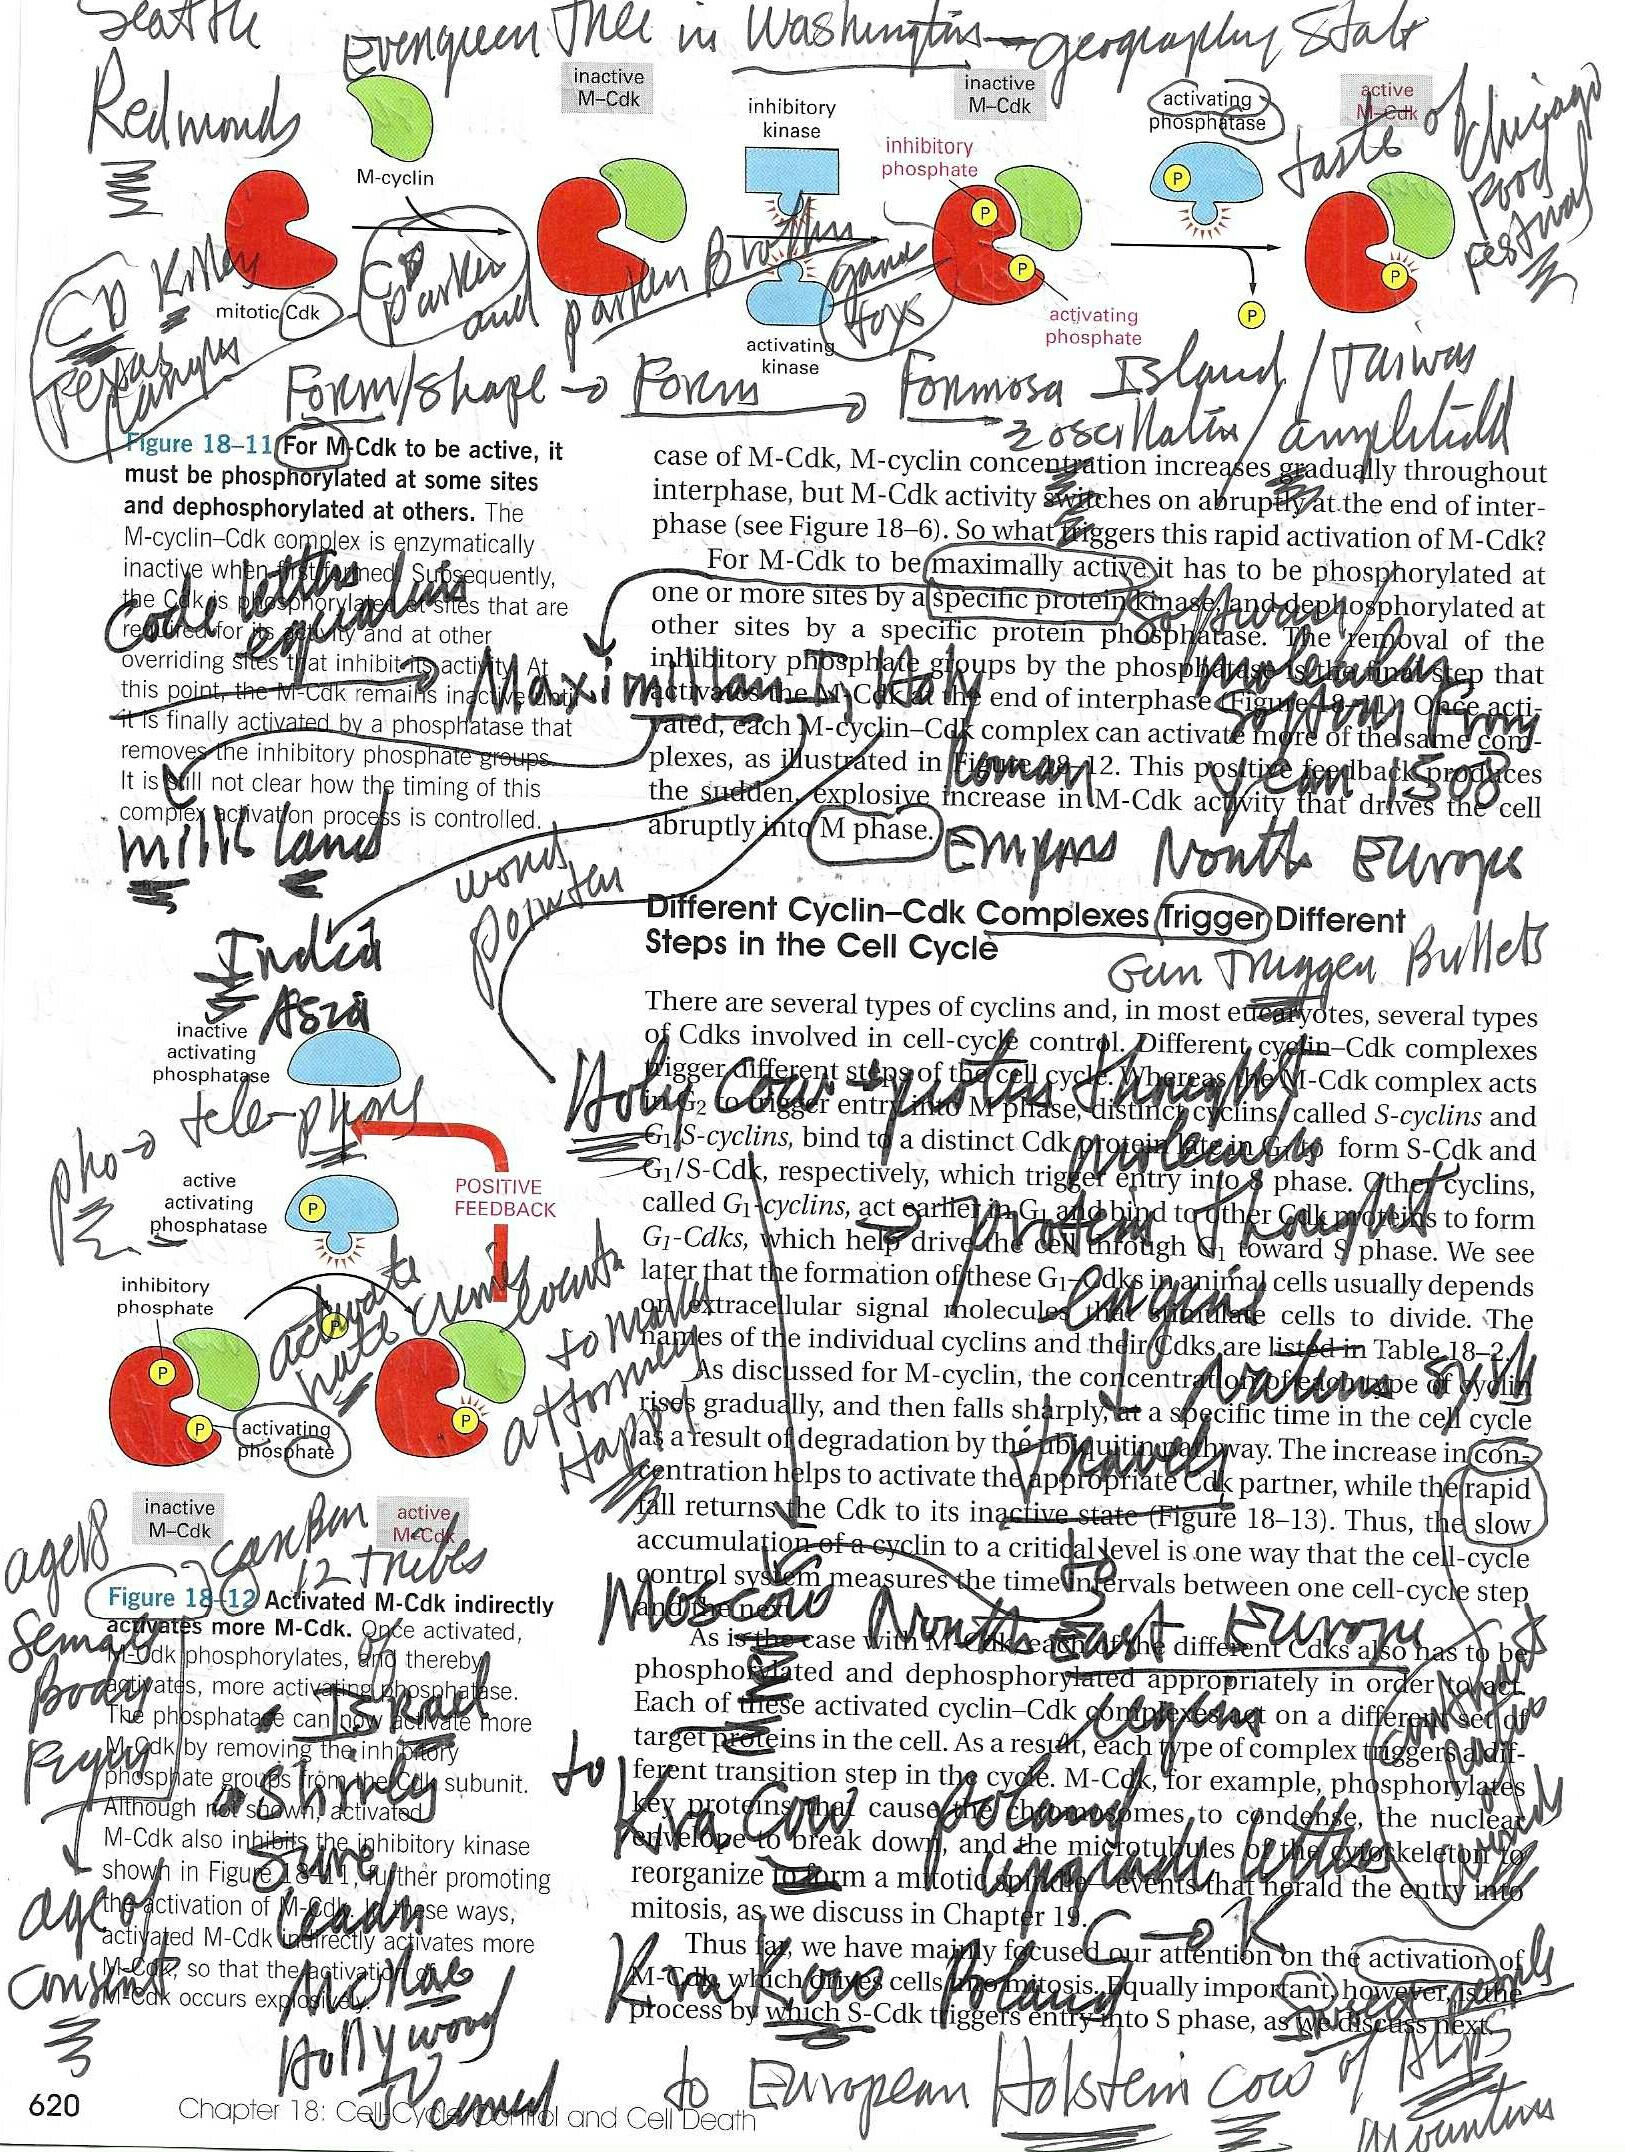 Seattle
Evergreen Tree in Washington geography State
Redmonds
inactive
M–Cdk
inhibitory
kinase
inactive
M–Cdk
activating
phosphatase
active
M–Cdk
taste of Chicago
Food
Festival
M-cyclin
inhibitory
phosphate
mitotic Cdk
CD
Parker
and
Parker Brothers
toys
activating
kinase
activating
phosphate
Form/shape → Form → Formosa Island / Taiwan
oscillation /
Figure 18–11 For M-Cdk to be active, it
must be phosphorylated at some sites
and dephosphorylated at others. The
M-cyclin–Cdk complex is enzymatically
inactive when first formed. Subsequently,
the Cdk is phosphorylated at sites that are
required for its activity and at other
overriding sites that inhibit its activity. At
this point, the M-Cdk remains inactive until
it is finally activated by a phosphatase that
removes the inhibitory phosphate groups.
It is still not clear how the timing of this
complex activation process is controlled.
code letters
milk land
India
Asia
case of M-Cdk, M-cyclin concentration increases gradually throughout
interphase, but M-Cdk activity switches on abruptly at the end of inter-
phase (see Figure 18–6). So what triggers this rapid activation of M-Cdk?
For M-Cdk to be maximally active it has to be phosphorylated at
one or more sites by a specific protein kinase, and dephosphorylated at
other sites by a specific protein phosphatase. The removal of the
inhibitory phosphate groups by the phosphatase is the final step that
activates the M-Cdk at the end of interphase (Figure 18–11). Once acti-
vated, each M-cyclin–Cdk complex can activate more of the same com-
plexes, as illustrated in Figure 18–12. This positive feedback produces
the sudden, explosive increase in M-Cdk activity that drives the cell
abruptly into M phase.
software
molecular
Maximilian I, Italy
Roman
From
year 1508
North Europe
word
pointer
Different Cyclin–Cdk Complexes Trigger Different
Steps in the Cell Cycle
Gun Trigger Bullets
There are several types of cyclins and, in most eucaryotes, several types
of Cdks involved in cell-cycle control. Different cyclin–Cdk complexes
trigger different steps of the cell cycle. Whereas the M-Cdk complex acts
in G2 to trigger entry into M phase, distinct cyclins, called S-cyclins and
G1/S-cyclins, bind to a distinct Cdk protein late in G1 to form S-Cdk and
G1/S-Cdk, respectively, which trigger entry into S phase. Other cyclins,
called G1-cyclins, act earlier in G1 and bind to other Cdk proteins to form
G1-Cdks, which help drive the cell through G1 toward S phase. We see
later that the formation of these G1–Cdks in animal cells usually depends
on extracellular signal molecules that stimulate cells to divide. The
names of the individual cyclins and their Cdks are listed in Table 18–2.
As discussed for M-cyclin, the concentration of each type of cyclin
rises gradually, and then falls sharply, at a specific time in the cell cycle
as a result of degradation by the ubiquitin pathway. The increase in con-
centration helps to activate the appropriate Cdk partner, while the rapid
fall returns the Cdk to its inactive state (Figure 18–13). Thus, the slow
accumulation of a cyclin to a critical level is one way that the cell-cycle
control system measures the time intervals between one cell-cycle step
and the next.
As is the case with M-Cdk, each of the different Cdks also has to be
phosphorylated and dephosphorylated appropriately in order to act.
Each of these activated cyclin–Cdk complexes act on a different set of
target proteins in the cell. As a result, each type of complex triggers a dif-
ferent transition step in the cycle. M-Cdk, for example, phosphorylates
key proteins that cause the chromosomes to condense, the nuclear
envelope to break down, and the microtubules of the cytoskeleton to
reorganize to form a mitotic spindle—events that herald the entry into
mitosis, as we discuss in Chapter 19.
Thus far, we have mainly focused our attention on the activation of
M-Cdk, which drives cells into mitosis. Equally important, however, is the
process by which S-Cdk triggers entry into S phase, as we discuss next.
Holy Cow → protein thought
molecules
→ protein thought
engine
travels
to
Moscow North East Europe
to
Kra Cow Poland
upgrade letters
C → K
Kra Kow Poland
to European Holstein cow of Alps
mountains
inactive
activating
phosphatase
tele-phone
pho →
active
activating
phosphatase
POSITIVE
FEEDBACK
inhibitory
phosphate
activate
hate crime
to make
attorney
Happy
activating
phosphate
inactive
M–Cdk
active
M–Cdk
age 18
12 tribes
of
Israel
Figure 18–12 Activated M-Cdk indirectly
activates more M-Cdk. Once activated,
M-Cdk phosphorylates, and thereby
activates, more activating phosphatase.
The phosphatase can now activate more
M-Cdk by removing the inhibitory
phosphate groups from the Cdk subunit.
Although not shown, activated
M-Cdk also inhibits the inhibitory kinase
shown in Figure 18–11, further promoting
the activation of M-Cdk. In these ways,
activated M-Cdk indirectly activates more
M-Cdk, so that the activation of
M-Cdk occurs explosively.
Body
age of
consent
Hollywood
620 Chapter 18: Cell-Cycle Control and Cell Death